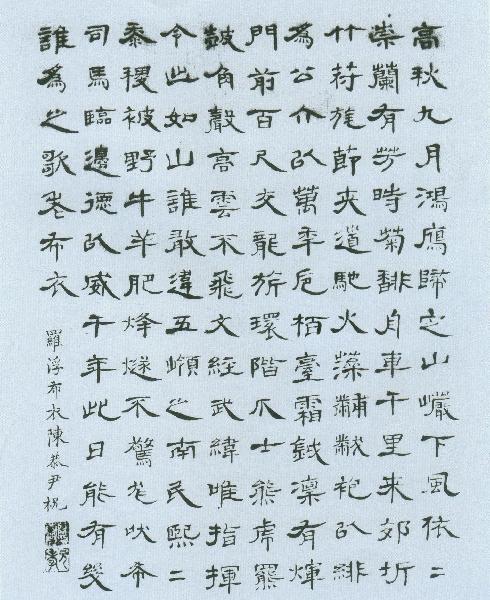 高秋九月鴻鴈歸之山巖下風依二
崇蘭有芳時菊自車千里來郊圻
竹苻旄節夾道馳火藻黼黻袍以緋
為公介以萬年卮栢臺霜鉞凜有煇
門前百尺交龍旂環階爪士熊虎羆
鼓角聲高雲不飛文經武緯唯指揮
令此如山誰敢違五嶺之南民熙二
黍稷被野牛羊肥烽燧不驚尨吠希
司馬臨邊德以威千年此日能有幾
誰為之歌老布衣
羅浮布衣陳恭尹祝